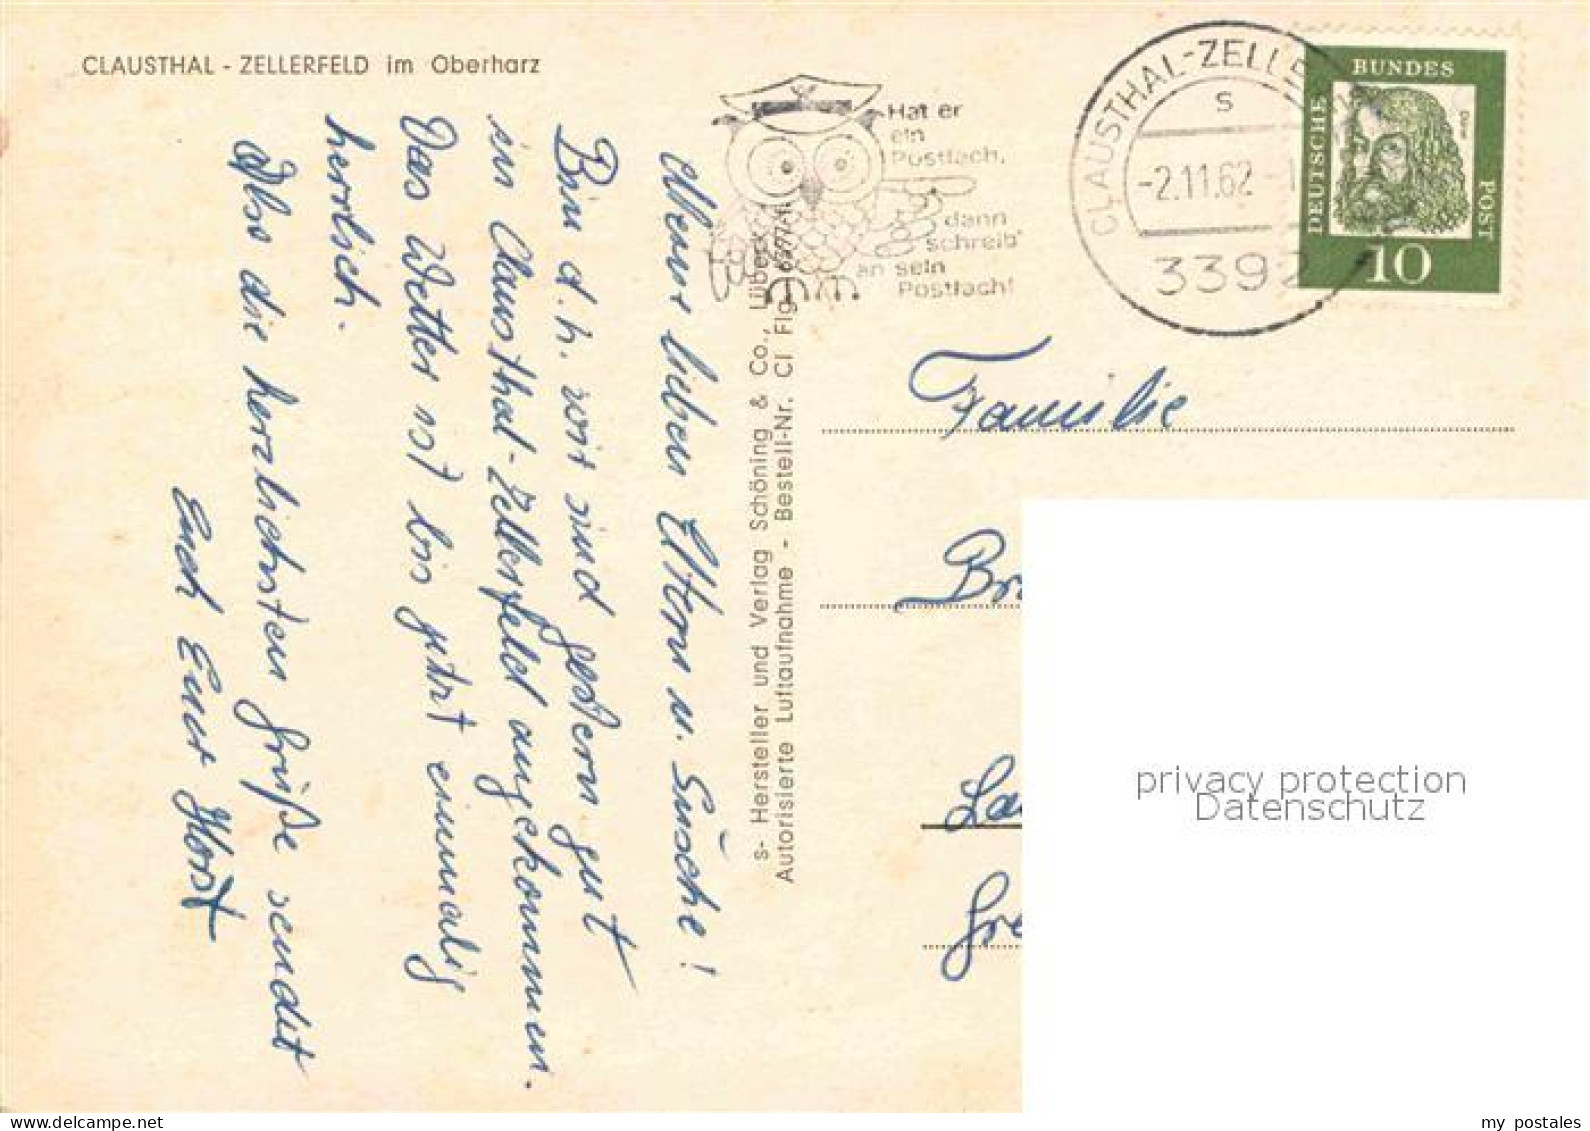 CLAUSTHAL - ZELLERFELD im Oberharz
Meine lieben Eltern u. Süsche!
Bin d.h. wir sind gestern gut
in Clausthal-Zellerfeld angekommen.
Das Wetter ist bis jetzt einmalig
herrlich.
Also die herzlichsten Grüße sendet
Euch Euer Horst
s- Hersteller und Verlag Schöning & Co., Lübeck
Autorisierte Luftaufnahme - Bestell-Nr. Cl Flg
Hat er
ein
Postfach,
dann
schreib'
an sein
Postfach!
CLAUSTHAL-ZELLE
s
-2.11.62
3392
DEUTSCHE
BUNDES
POST
Dürer
10
Familie
privacy protection
Datenschutz
my_postales